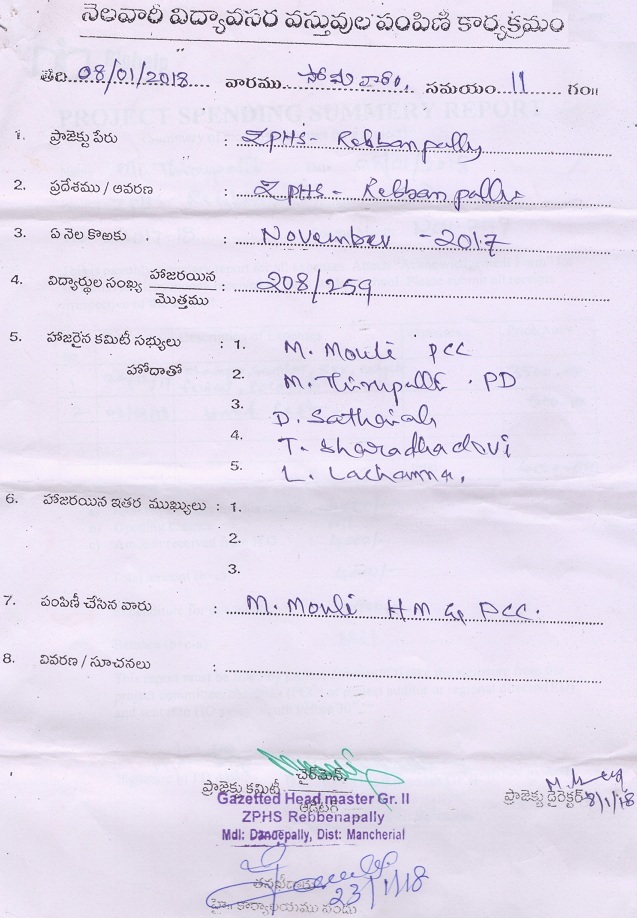 నెలవారి విద్యావసర వస్తువుల పంపిణీ కార్యక్రమం
తేది 08/01/2018 వారము సోమవారం, సమయం 11 గం॥
PROJECT SPENDING SUMMERY REPORT
1. ప్రాజెక్టు పేరు : ZPHS- Rebbanpally
2. ప్రదేశము / ఆవరణ : ZPHS - Rebbanpally
3. ఏ నెల కొఱకు : November - 2017
4. విద్యార్థుల సంఖ్య హాజరయిన / మొత్తము : 208/259
5. హాజరైన కమిటీ సభ్యులు : 1. M. Mouli PCC
హోదాతో 2. M. Thirupathi . PD
3. D. Sathaiah
4. T. Sharadhadevi
5. L. Lachanna,
6. హాజరయిన ఇతర ముఖ్యులు : 1.
2.
3.
7. పంపిణీ చేసిన వారు : M. Mouli HM & PCC.
8. వివరణ / సూచనలు :
ప్రాజెక్టు కమిటీ ఛైర్మెన్
ప్రాజెక్టు డైరెక్టర్ 8/1/18
Gazetted Head master Gr. II
ZPHS Rebbenapally
Mdl: Dandepally, Dist: Mancherial
23/1/18